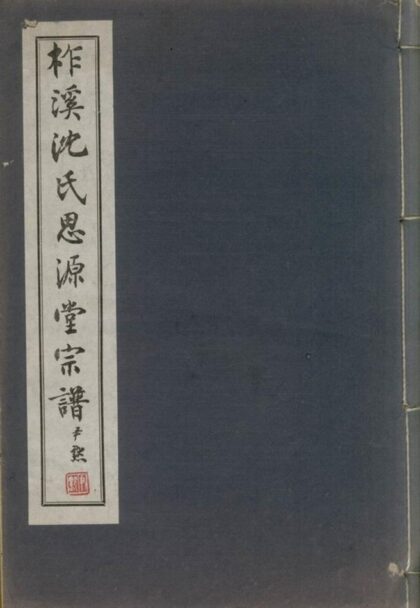 柞溪沈氏思源堂宗譜
尹默